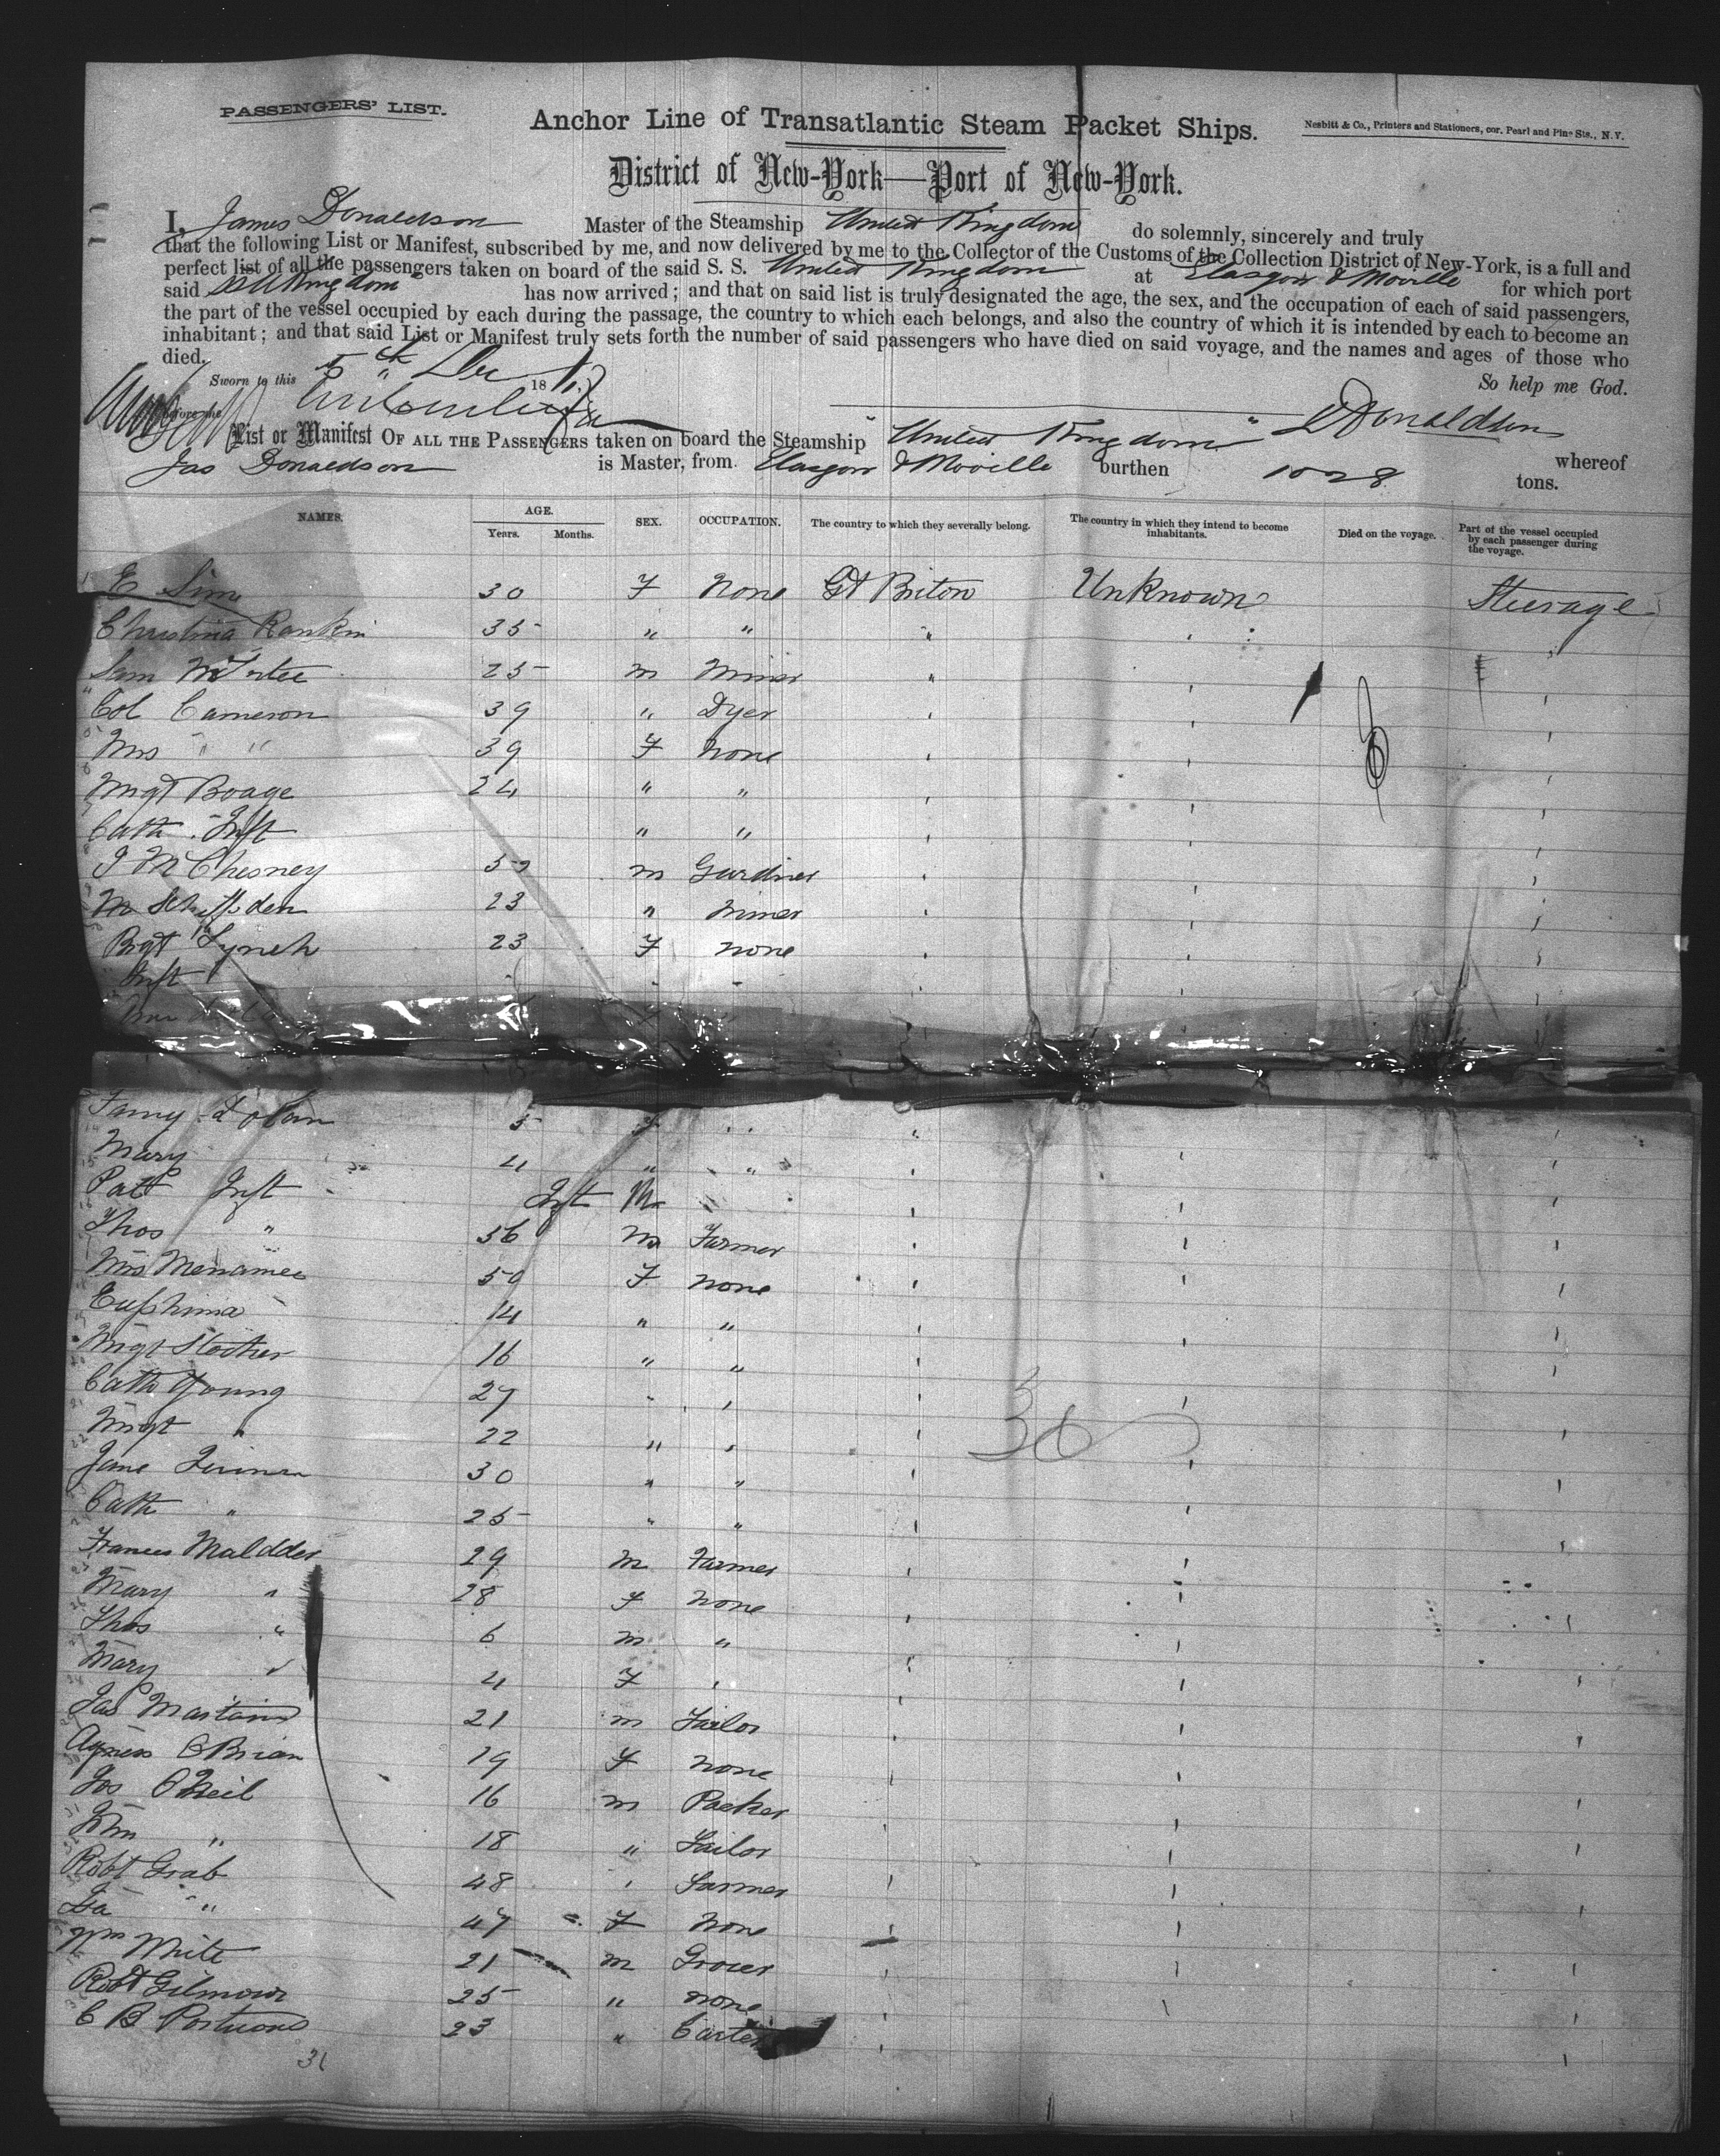 PASSENGERS' LIST.
Anchor Line of Transatlantic Steam Packet Ships.
Nesbitt & Co., Printers and Stationers, cor. Pearl and Pine Sts., N.Y.
District of New-York—Port of New-York.
I, James Donaldson Master of the Steamship United Kingdom do solemnly, sincerely and truly
that the following List or Manifest, subscribed by me, and now delivered by me to the Collector of the Customs of the Collection District of New-York, is a full and
perfect list of all the passengers taken on board of the said S. S. United Kingdom at Glasgow & Moville for which port
said Kingdom has now arrived; and that on said list is truly designated the age, the sex, and the occupation of each of said passengers,
the part of the vessel occupied by each during the passage, the country to which each belongs, and also the country of which it is intended by each to become an
inhabitant; and that said List or Manifest truly sets forth the number of said passengers who have died on said voyage, and the names and ages of those who
died.
So help me God.
Sworn to this 5th Dec 18
before me
Donaldson
List or Manifest OF ALL THE PASSENGERS taken on board the Steamship "United Kingdom" whereof
Jas Donaldson is Master, from Glasgow & Moville burthen 1028 tons.
NAMES. AGE. Years. Months. SEX. OCCUPATION. The country to which they severally belong. The country in which they intend to become inhabitants. Died on the voyage. Part of the vessel occupied by each passenger during the voyage.
E Sim 30 F None Gt Briton Unknown Steerage
Christina Rankin 35 " " "
Sam 25 m Miner "
Col Cameron 39 " Dyer
Mrs " " 39 F None
Mgt Boage 24 " "
Cath Inft " "
J McChesney m Gardiner
23 " Miner
Bgt Lynch 23 F none
Inft
F
Fanny Dolan 5 F
Mary 4 " "
Patk Inft Inft M
Thos " 36 m Farmer
Mrs Menamee 50 F none
Euphima 14 " "
Mgt 16 " "
Cath Young 27
Mgt " 22 "
Jane 30 " "
Cath " 25 " "
Frances Maldder 29 m Farmer
Mary " 28 F none
Thos " 6 m "
Mary " 4 F
Jas Martain 21 m Tailor
Agness OBrian 19 F none
Jos ONeil 16 m Packer
" 18 " Sailor
Robt Grab 48 Farmer
" 47 F None
Wm White 21 m Grocer
Robt Gilmour 25 " none
C B 23 " Carter
36
31